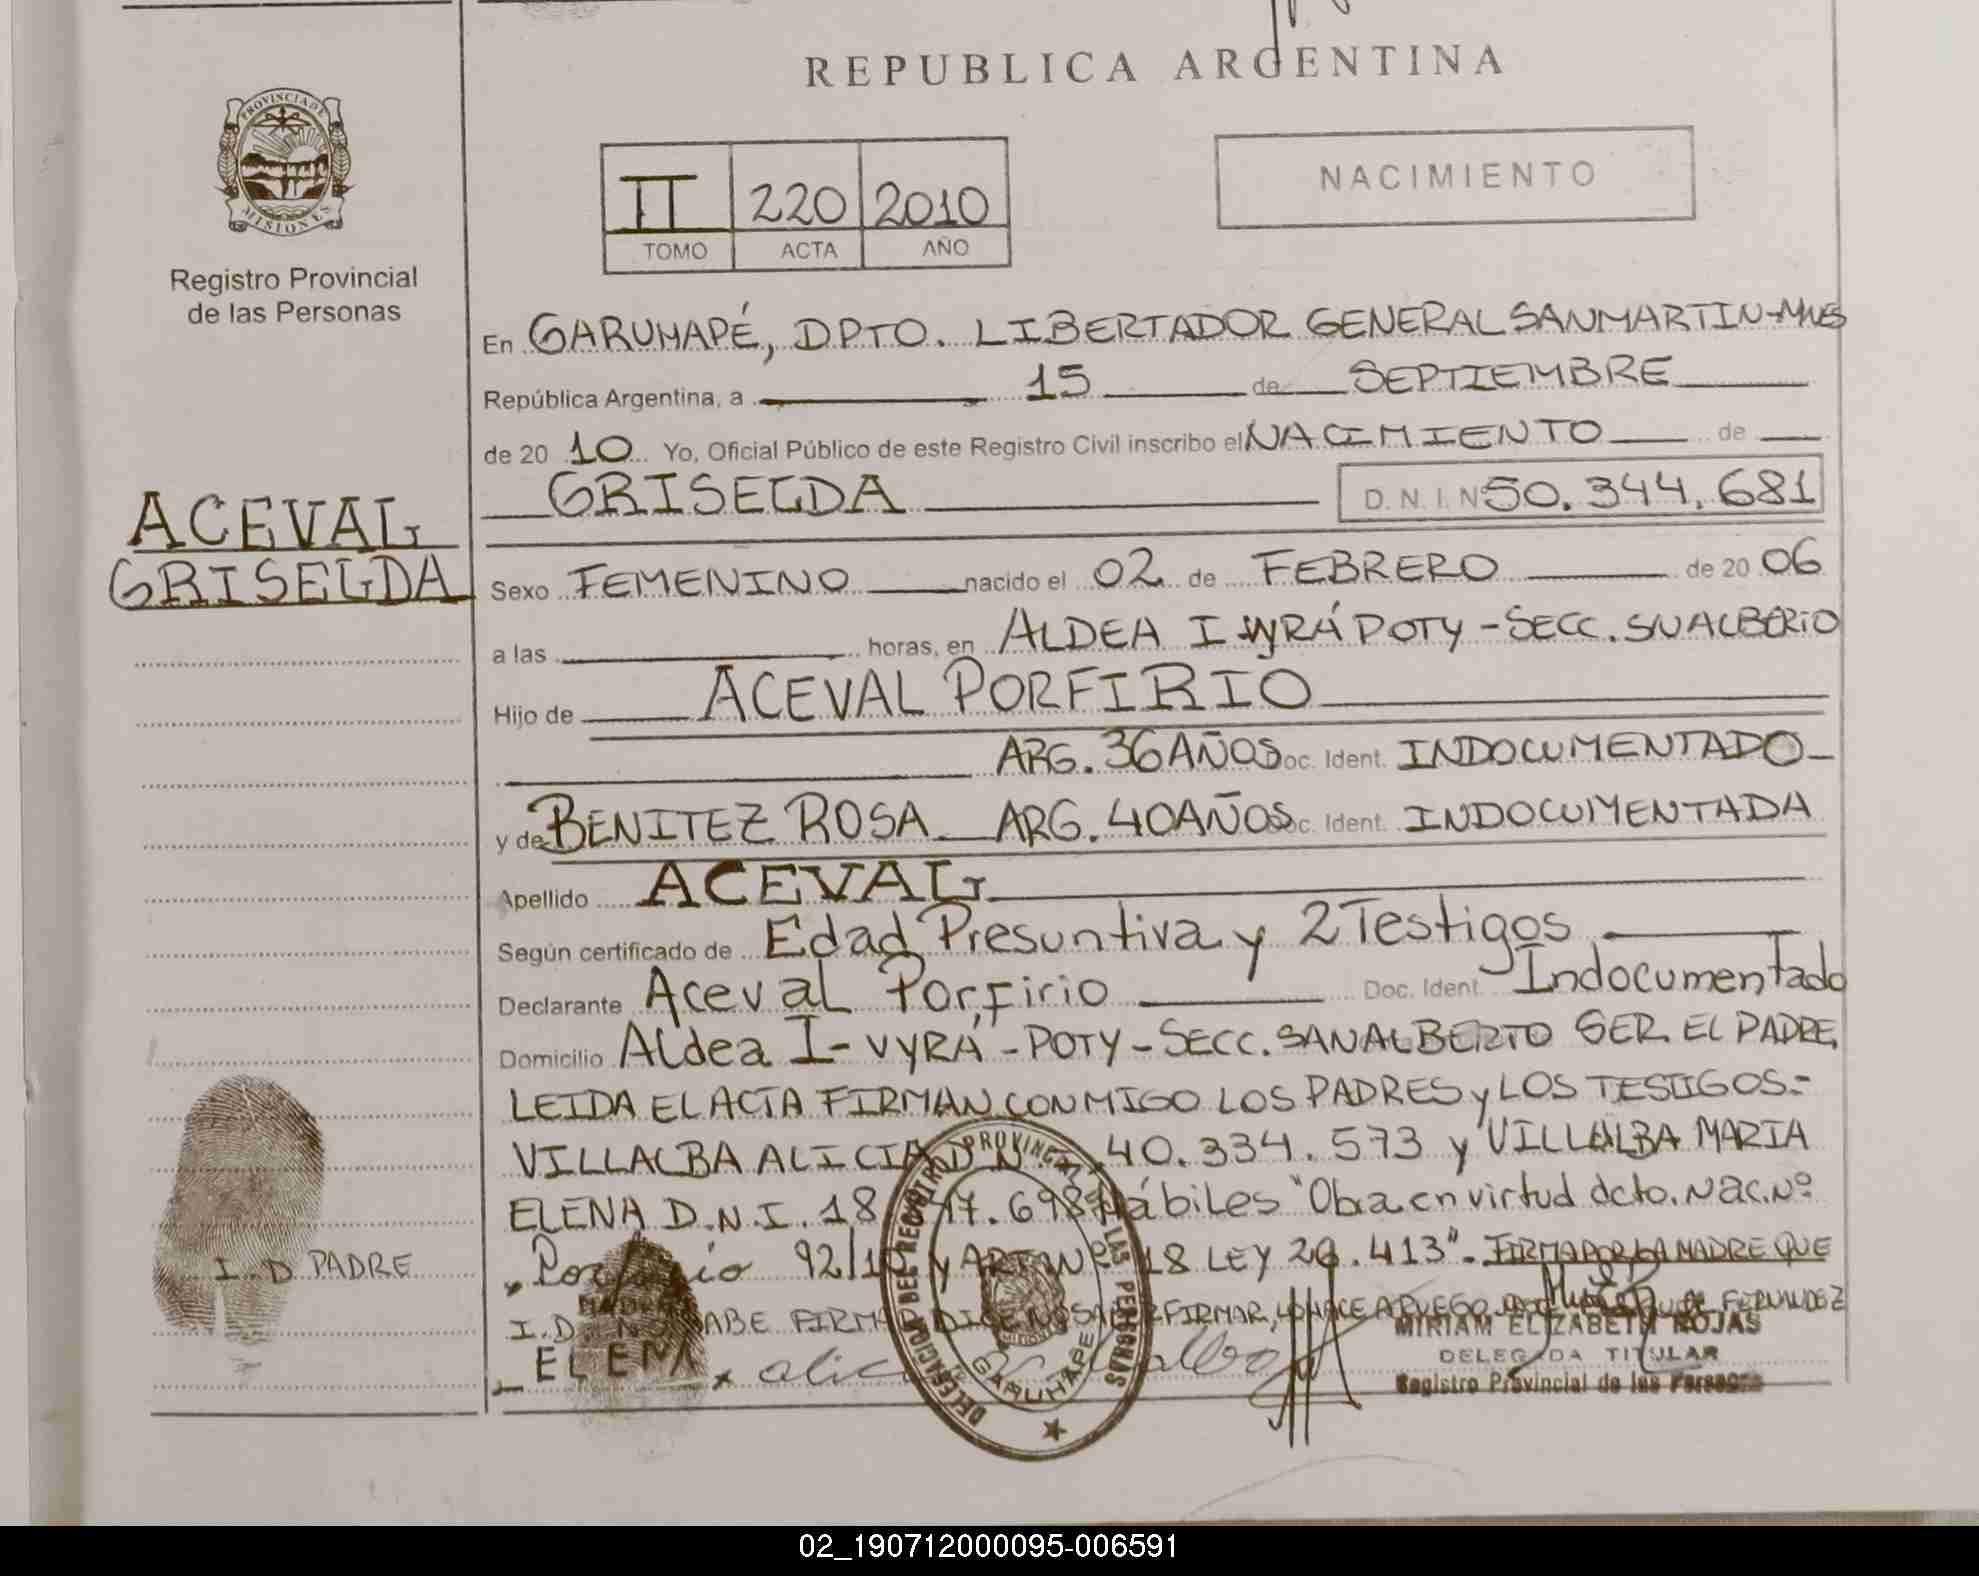 REPUBLICA ARGENTINA
PROVINCIA DE
MISIONES
Registro Provincial
de las Personas
II 220 2010
TOMO ACTA AÑO
NACIMIENTO
En GARUHAPÉ, DPTO. LIBERTADOR GENERAL SAN MARTIN-MNES
República Argentina, a 15 de SEPTIEMBRE
de 20 10 Yo, Oficial Público de este Registro Civil inscribo el NACIMIENTO de
GRISELDA D.N.I. Nº 50.344.681
ACEVAL
GRISELDA
Sexo FEMENINO nacido el 02 de FEBRERO de 20 06
a las horas, en ALDEA I VYRÁ POTY - SECC. SN ALBERTO
Hijo de ACEVAL PORFIRIO
ARG. 36 AÑOS Doc. Ident. INDOCUMENTADO
y de BENITEZ ROSA ARG. 40 AÑOS Doc. Ident. INDOCUMENTADA
Apellido ACEVAL
Según certificado de Edad Presuntiva y 2 Testigos
Declarante Aceval Porfirio Doc. Ident. Indocumentado
Domicilio Aldea I-VYRÁ-POTY-SECC. SAN ALBERTO SER EL PADRE,
LEIDA EL ACTA FIRMAN CON MIGO LOS PADRES y LOS TESTIGOS.-
VILLALBA ALICIA D.N.I. 40.334.573 y VILLALBA MARIA
ELENA D.N.I. 18 47.698 Hábiles "Obra en virtud dcto. Nac. Nº
Porfirio 92/10 y ART Nº 18 LEY 26.413"- FIRMA POR LA MADRE QUE
I.D. PADRE
I.D. MADRE NO SABE FIRMAR DICE NO SABER FIRMAR, LO HACE A RUEGO FERNANDEZ
ELENA
MIRIAM ELIZABETH ROJAS
DELEGADA TITULAR
Registro Provincial de las Personas
DELEGACIÓN DEL REGISTRO PROVINCIAL DE LAS PERSONAS
GARUHAPE
02_190712000095-006591